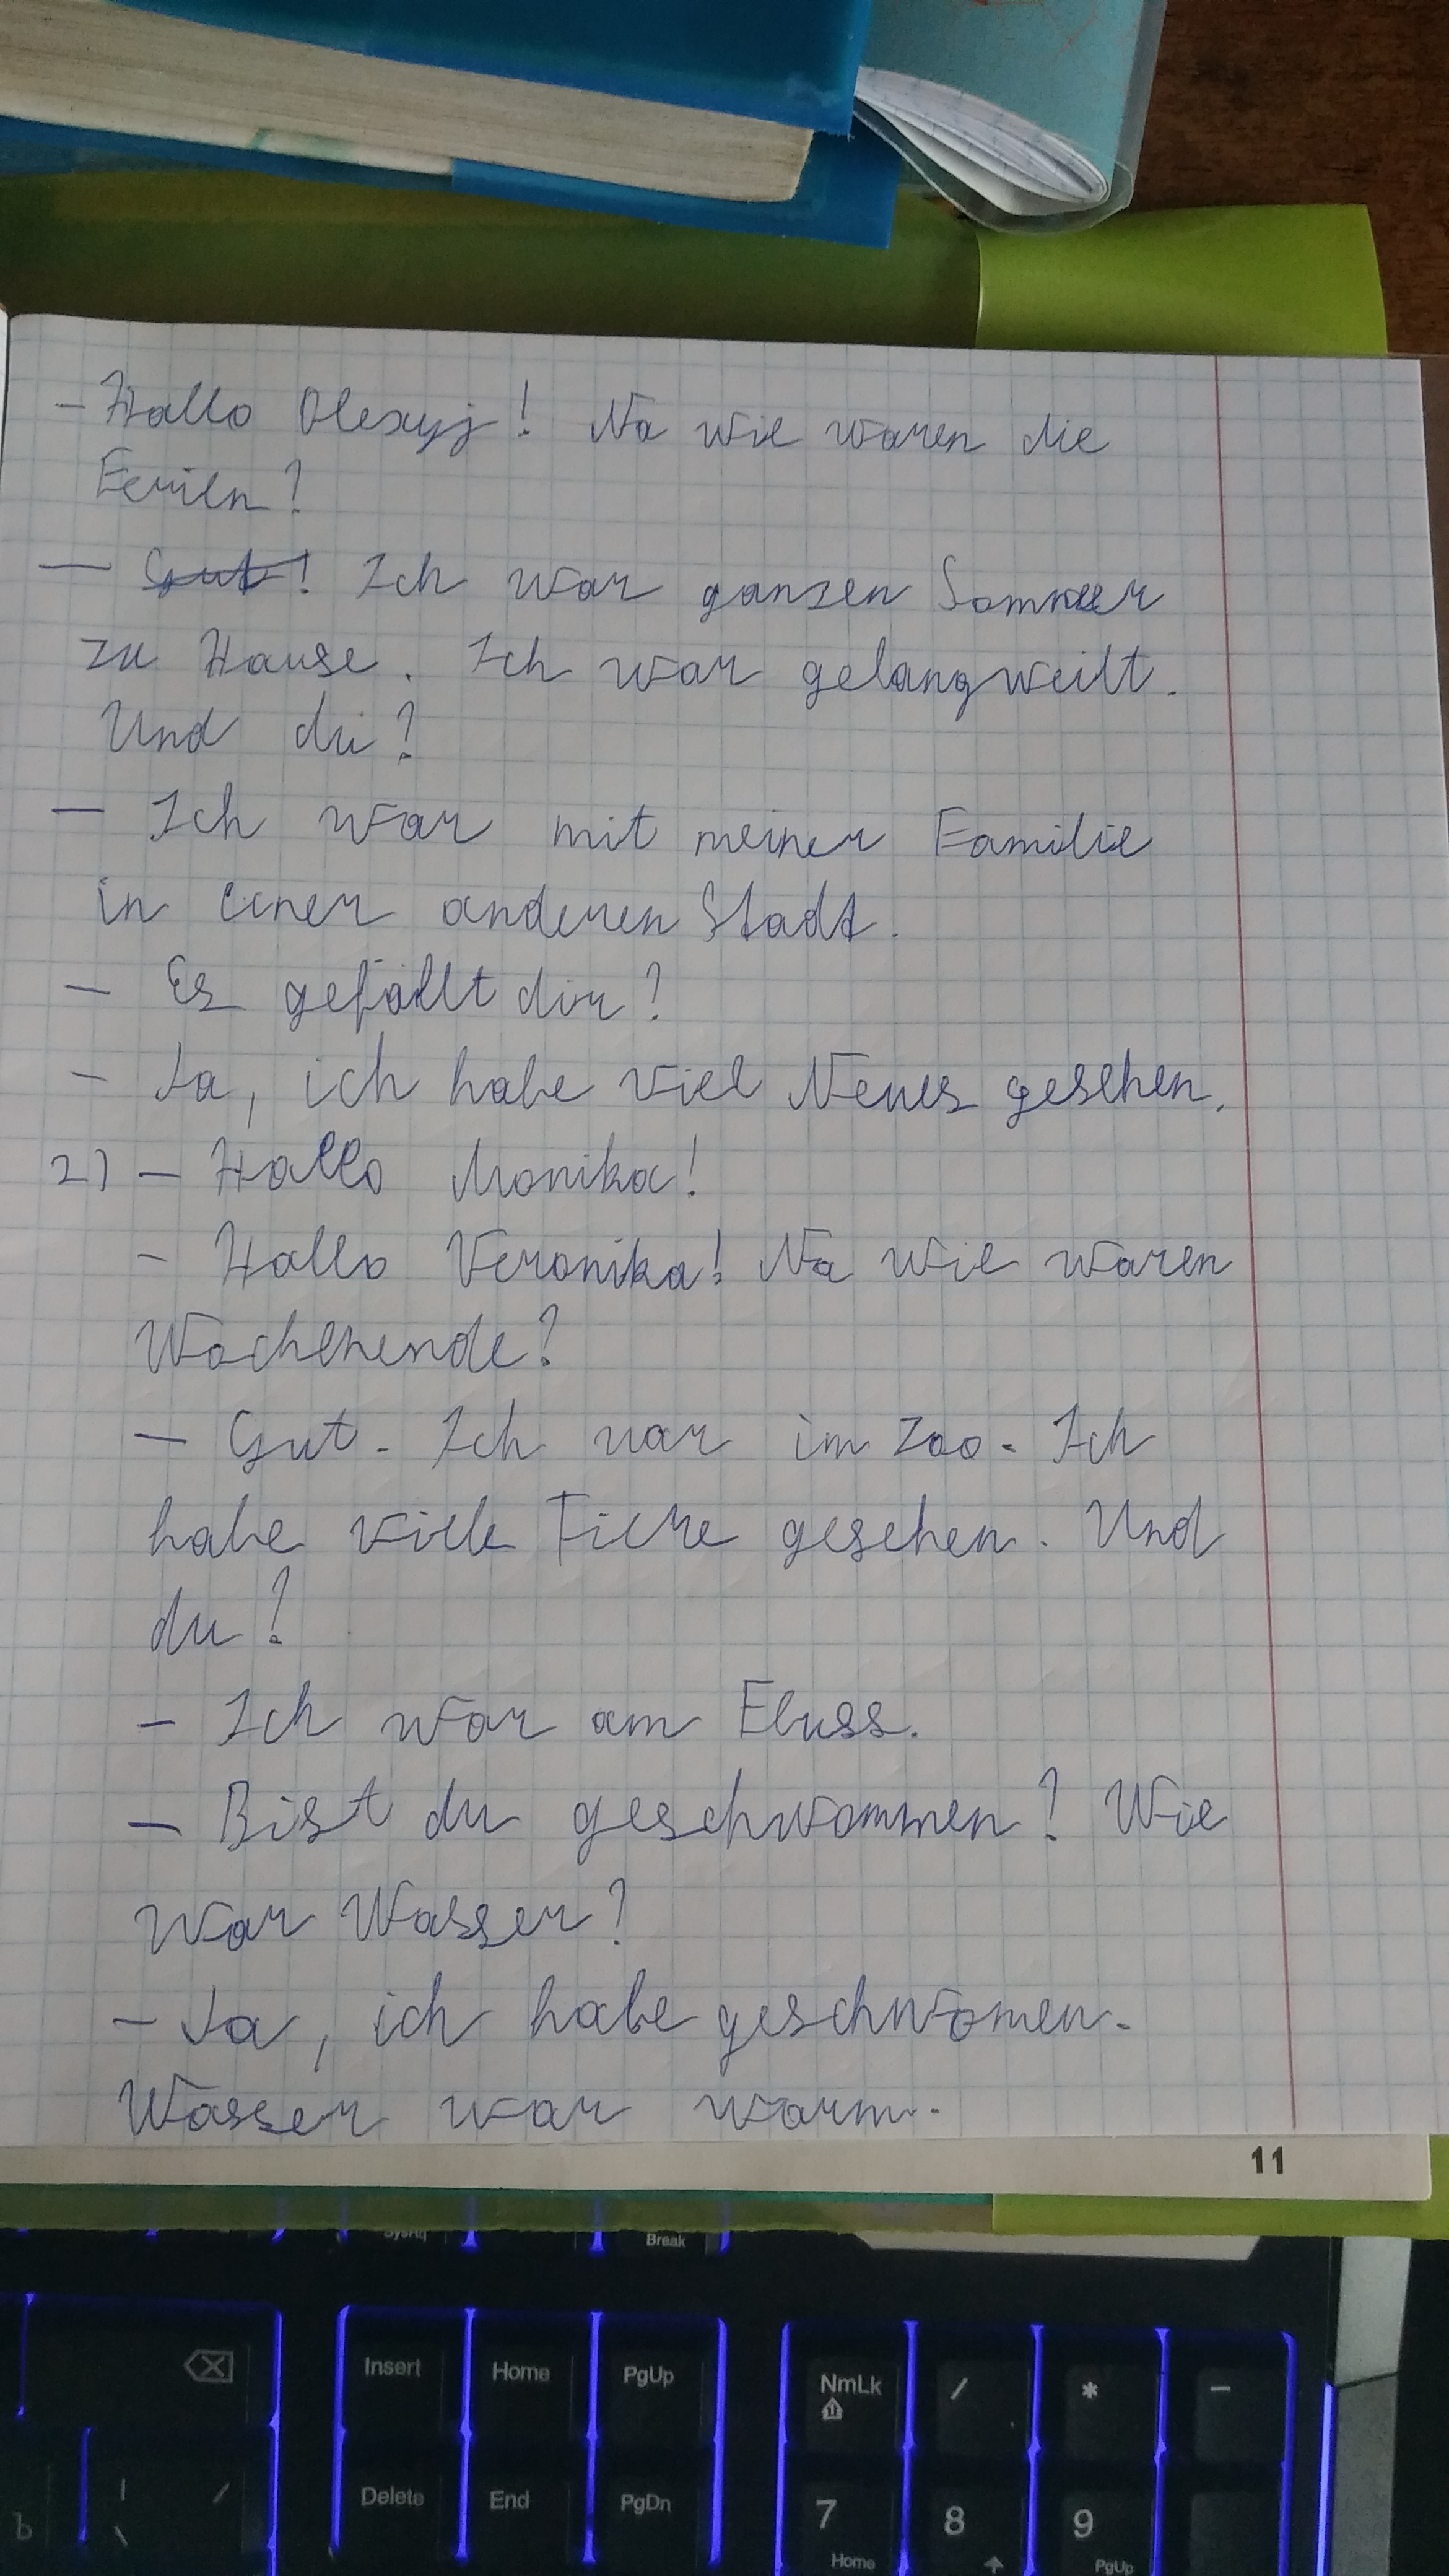 - Hallo Olexyj! Na wie waren die
Ferien?
- Gut! Ich war ganzen Sommer
zu Hause. Ich war gelangweilt.
Und du?
- Ich war mit meiner Familie
in einer anderen Stadt.
- Es gefällt dir?
- Ja, ich habe viel Neues gesehen.
2) - Hallo Monika!
- Hallo Veronika! Na wie waren
Wochenende?
- Gut. Ich war im Zoo. Ich
habe viele Tiere gesehen. Und
du?
- Ich war am Fluss.
- Bist du geschwommen? Wie
war Wasser?
- Ja, ich habe geschwomen.
Wasser war warm.
11
SysRq Break
Insert Home PgUp NmLk / * -
Delete End PgDn 7 8 9
Home PgUp